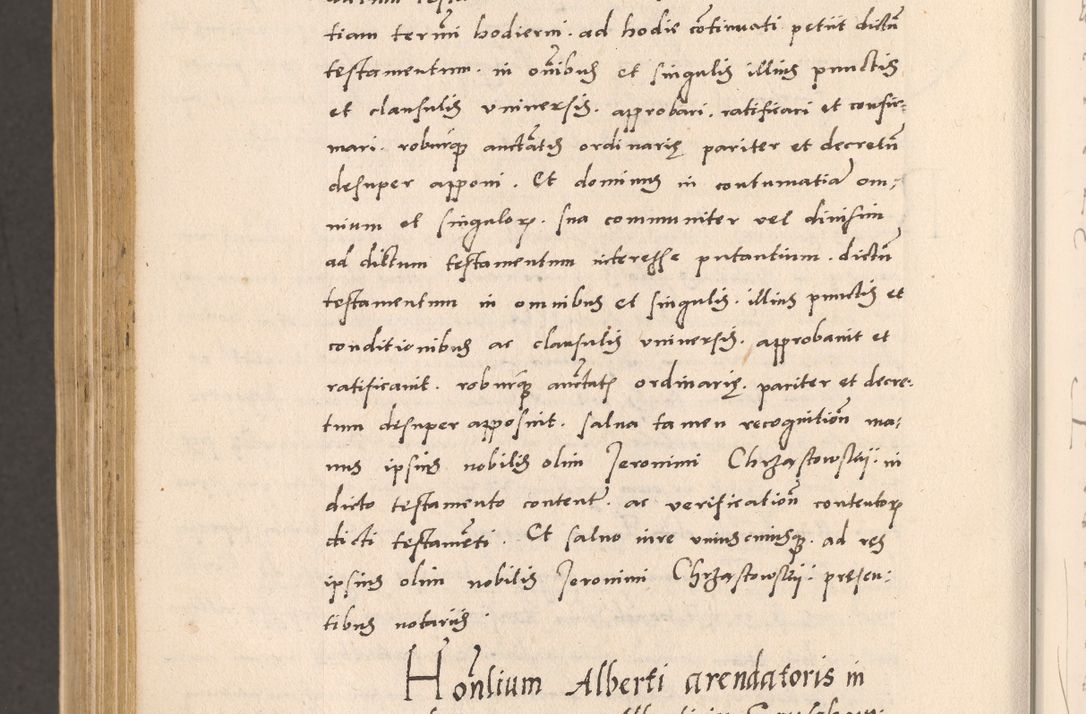 tiam termi̅ni hodierni. ad hodie co̅tinuati petiit dictu̅
testamentum. in om̅nibus et singulis illius punctis
et clausulis vniuersis. approbari. ratificari et confir-
mari. roburq̨ auct̅atis ordinarię pariter et decretu̅
desuper apponi. Et dominus in contumatia̅ om-
nium et singulorꝝ. sua communiter vel diuisim
ad dictum testamentum interesse putantium. dictu̅
testamentum in omnibus et singulis. illius punctis et
conditionibus ac clausulis vniuersis. approbauit et
ratificauit. roburq̨ auct̅atis ordinarię. pariter et decre-
tum desuper apposuit. salua tamen recognitio̅n ma-
nus ipsius nobilis olim Jeronimi Chrząstowskij. in
dicto testamento content̅. ac verificatio̅n contentorꝝ
dicti testame̅nti. Et saluo iure vniuscuiusq̨. ad res
ipsius olim nobilis Jeronimi Chrząstowskij: pręsen-
tibus notariis
Hon̅lium Alberti arendatoris in